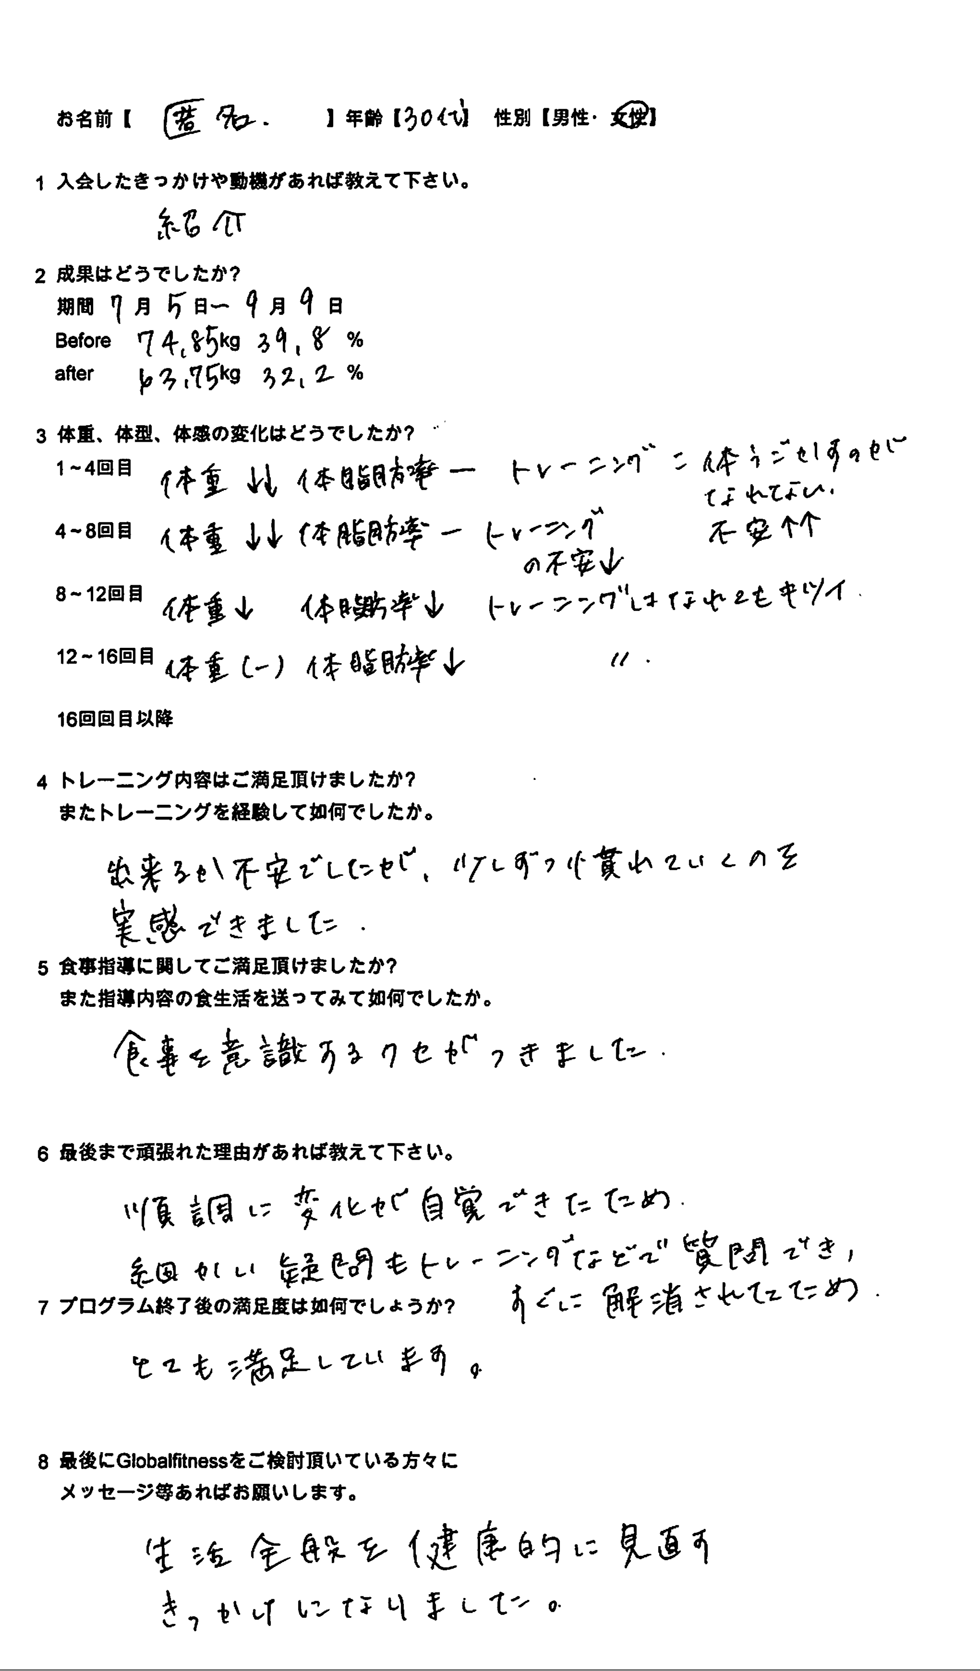 お名前【 匿名. 】年齢【30代】 性別【男性・女性】
1 入会したきっかけや動機があれば教えて下さい。
紹介
2 成果はどうでしたか?
期間 7月5日〜9月9日
Before 74.85kg 39.8 %
after 63.75kg 32.2 %
3 体重、体型、体感の変化はどうでしたか?
1~4回目 体重↓↓ 体脂肪率ー トレーニング=体うごかすのが
なれてない.
不安↑↑
4~8回目 体重↓↓ 体脂肪率ー トレーニング
の不安↓
8~12回目 体重↓ 体脂肪率↓ トレーニングはなれてもキツイ.
12~16回目 体重(ー) 体脂肪率↓ 〃.
16回回目以降
4 トレーニング内容はご満足頂けましたか?
またトレーニングを経験して如何でしたか。
出来るか不安でしたが、少しずつ慣れていくのを
実感できました.
5 食事指導に関してご満足頂けましたか?
また指導内容の食生活を送ってみて如何でしたか。
食事を意識するクセがつきました.
6 最後まで頑張れた理由があれば教えて下さい。
順調に変化が自覚できたため.
細かい疑問もトレーニングなどで質問でき,
すぐに解消されてたため.
7 プログラム終了後の満足度は如何でしょうか?
とても満足しています。
8 最後にGlobalfitnessをご検討頂いている方々に
メッセージ等あればお願いします。
生活全般を健康的に見直す
きっかけになりました。